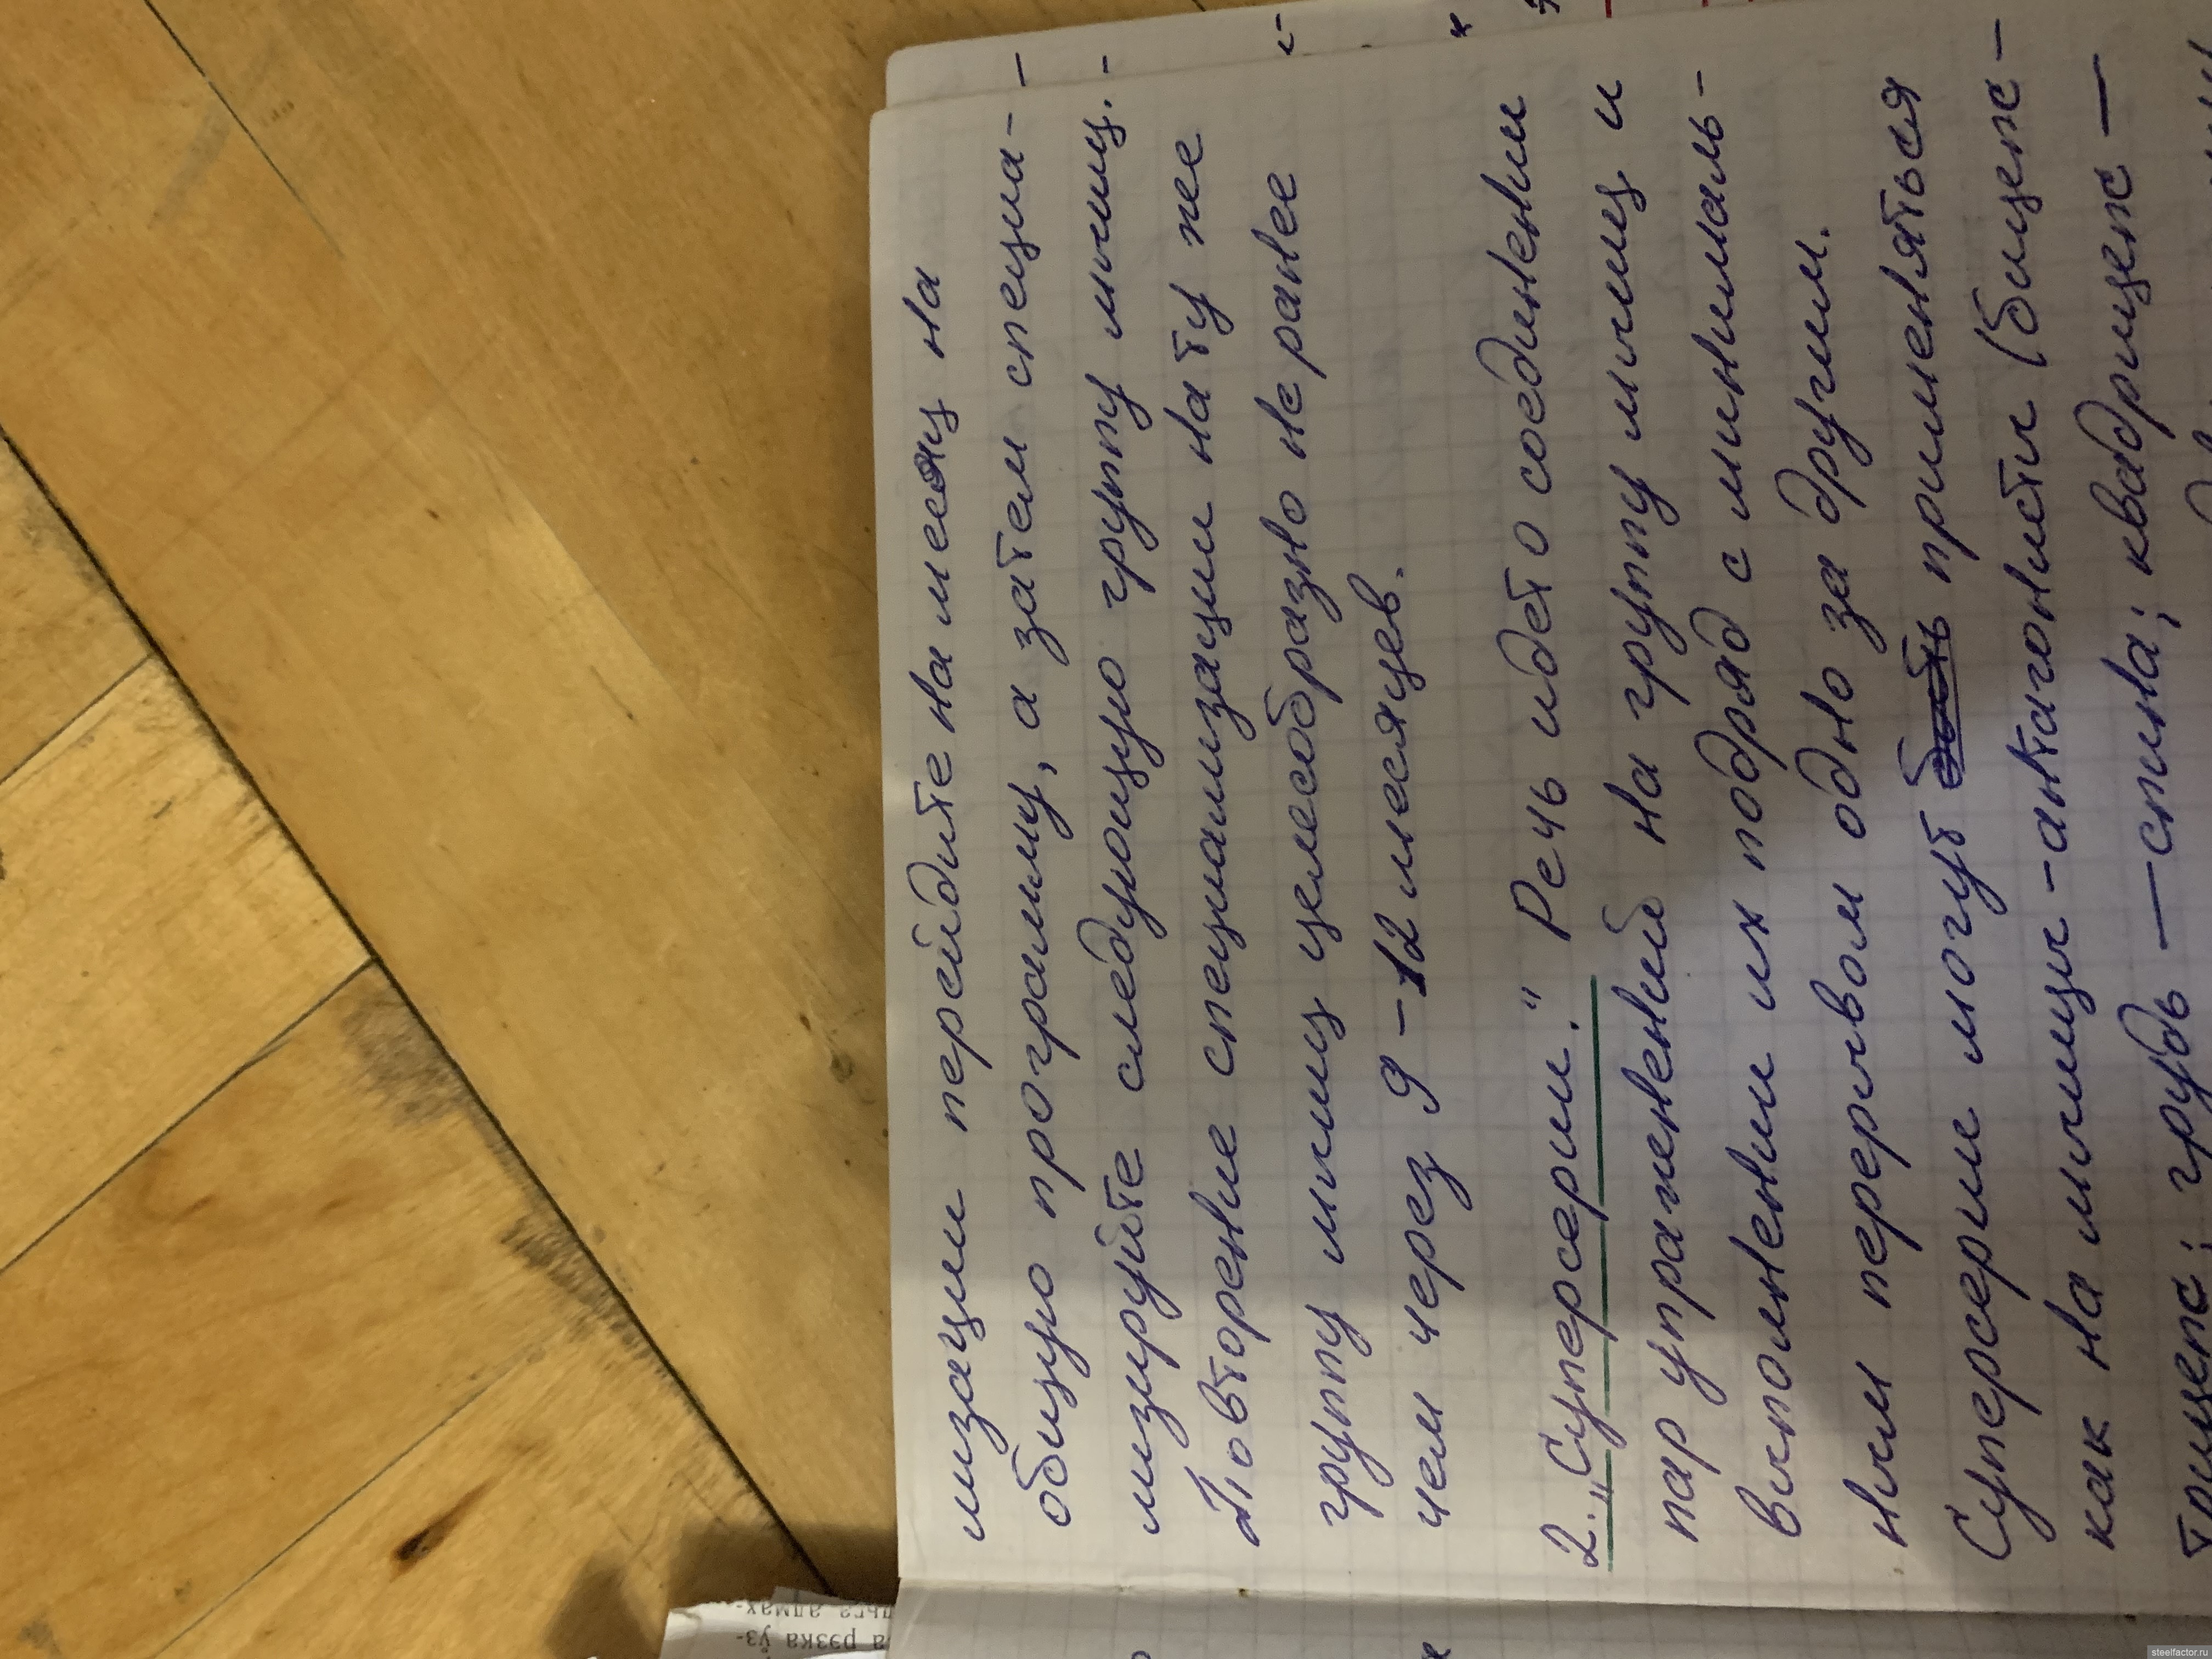 лизации перейдите на месяц на
общую программу, а затем специа-
лизируйте следующую группу мышц.
Повторение специализации на ту же
группу мышц целесообразно не ранее
чем через 9-12 месяцев.
2. "Суперсерии." Речь идет о соединении
пар упражнений на группу мышц и
выполнении их подряд с минималь-
ным перерывом одно за другим.
Суперсерии могут быть применяться
как на мышцы-антагонисты (бицепс-
трицепс; грудь — спина; квадрицепс —
льга алмах-
а рэзка ўз-
steelfactor.ru